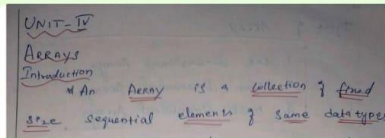 UNIT-IV
ARRAYS
Introduction
* An Array is a collection of fixed
size sequential elements of same data types